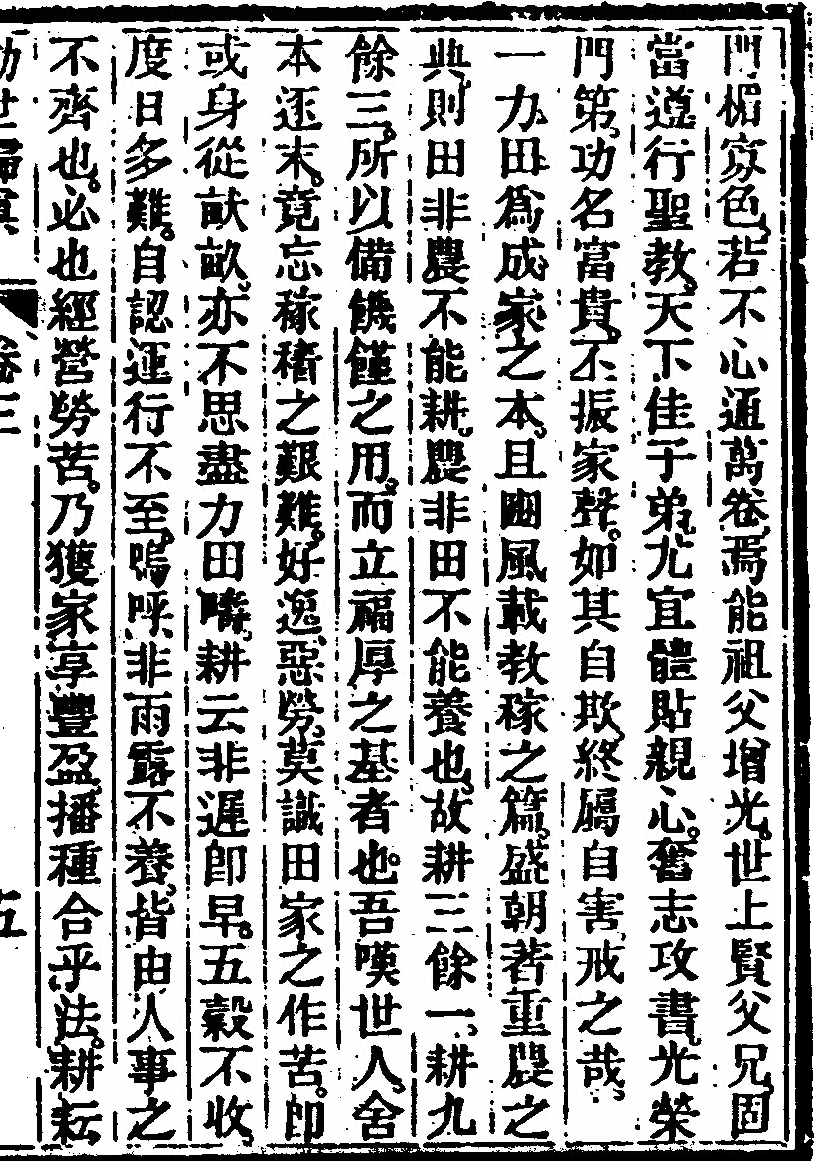 門楣寡色若不心通萬卷焉能祖父增光世上賢父兄固
當遵行聖教天下佳子弟尤宜體貼親心奮志攻書光榮
門第功名富貴丕振家聲如其自欺終屬自害戒之哉
一力田爲成家之本且豳風載教稼之篇盛朝著重農之
典則田非農不能耕農非田不能養也故耕三餘一耕九
餘三所以備饑饉之用而立福厚之基者也吾嘆世人舍
本逐末竟忘稼穡之艱難好逸惡勞莫識田家之作苦卽
或身從畎畝亦不思盡力田疇耕云非遲卽早五穀不收
度日多難自認運行不至嗚呼非雨露不養皆由人事之
不齊也必也經營勞苦乃獲家享豐盈播種合乎法耕耘
卷三 五